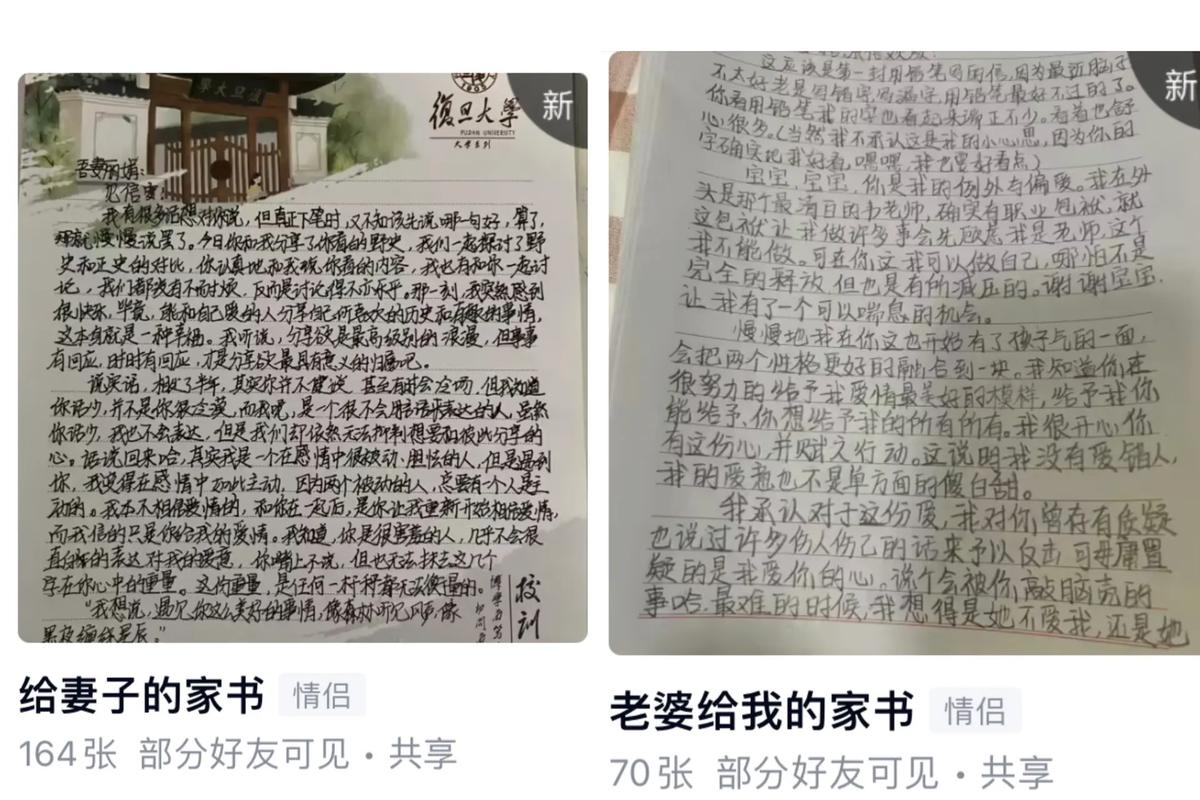 學大旦復
1905
復旦大學
FUDAN UNIVERSITY
大学系列
新
吾妻丽娟：
见信安！
我有很多话想对你说，但真正下笔时，又不知该先说哪一句好，算了，
那就慢慢说罢了。今日你和我分享了你看的野史，我们一起探讨了野
史和正史的对比，你认真地和我说你看的内容，我也有和你一起讨
论，我们都没有不耐烦，反而是讨论得不亦乐乎。那一刻，我突然感到
很快乐，毕竟，能和自己爱的人分享自己所喜欢的历史和有趣的事情，
这本身就是一种幸福。我听说，分享欲是最高级别的浪漫，但事事
有回应，时时有回应，才是分享欲最具有意义的归宿吧。
说实话，相处了半年，其实你并不健谈，甚至有时会冷场，但我知道
你话少，并不是你很冷漠，而我呢，是一个很不会用话语表达的人，虽然
你话少，我也不会表达，但是我们却依然无法抑制想要和彼此分享的
心。话说回来哈，其实我是一个在感情中很被动、胆怯的人，但是遇到
你，我变得在感情中如此主动，因为两个被动的人，总要有一个人是主
动的。我本不相信爱情的，和你在一起后，是你让我重新开始相信爱情，
而我信的只是你给我的爱情。我知道，你是很害羞的人，几乎不会很
直白的表达对我的爱意，你嘴上不说，但也无法抹去这几个
字在你心中的重量。这份重量，是任何一杆秤都无法衡量的。
“我想说，遇见你这么美好的事情，像森林听见风声，像
黑夜缠绵星辰。”
校训
博学而笃
切问
给妻子的家书 情侣
164张 部分好友可见・共享
新
这应该是第一封用铅笔写的信，因为最近脑子
不太好老是写错字写漏字，用铅笔最好不过的了。
你看用铅笔我的字也看起来端正不少。看着也舒
心很多。（当然我不承认这是我的小心思，因为你的
字确实比我好看，嘿嘿，我也要好看点）
宝宝，宝宝，你是我的例外与偏爱。我在外
头是那个最清白的书老师，确实有职业包袱，就
这包袱让我做许多事会先顾虑我是老师，这个
我不能做。可在你这我可以做自己，哪怕不是
完全的释放，但也是有所减压的。谢谢宝宝，
让我有了一个可以喘息的机会。
慢慢地我在你这也开始有了孩子气的一面，
会把两个性格更好的融合到一块。我知道你在
很努力的给予我爱情最美好的模样，给予我你
能给予、你想给予我的所有所有。我很开心你
有这份心，并赋之行动。这说明我没有爱错人，
我的爱意也不是单方面的傻白甜。
我承认对于这份爱，我对你曾存有质疑
也说过许多伤人伤己的话来予以反击，可毋庸置
疑的是我爱你的心。说个会被你敲脑壳的
事哈，最难的时候，我想得是她不爱我，还是她
老婆给我的家书 情侣
70张 部分好友可见・共享